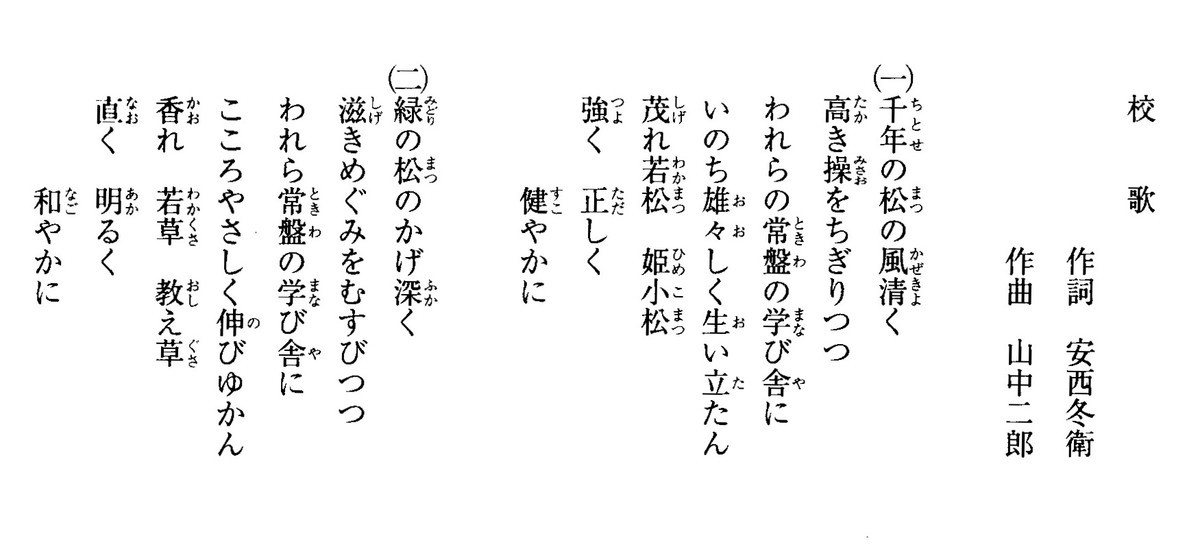 校 歌
作詞 安西冬衛
作曲 山中二郎
(一)千年の松の風清く
高き操をちぎりつつ
われらの常盤の学び舎に
いのち雄々しく生い立たん
茂れ若松 姫小松
強く 正しく
健やかに
(二)緑の松のかげ深く
滋きめぐみをむすびつつ
われら常盤の学び舎に
こころやさしく伸びゆかん
香れ 若草 教え草
直く 明るく
和やかに